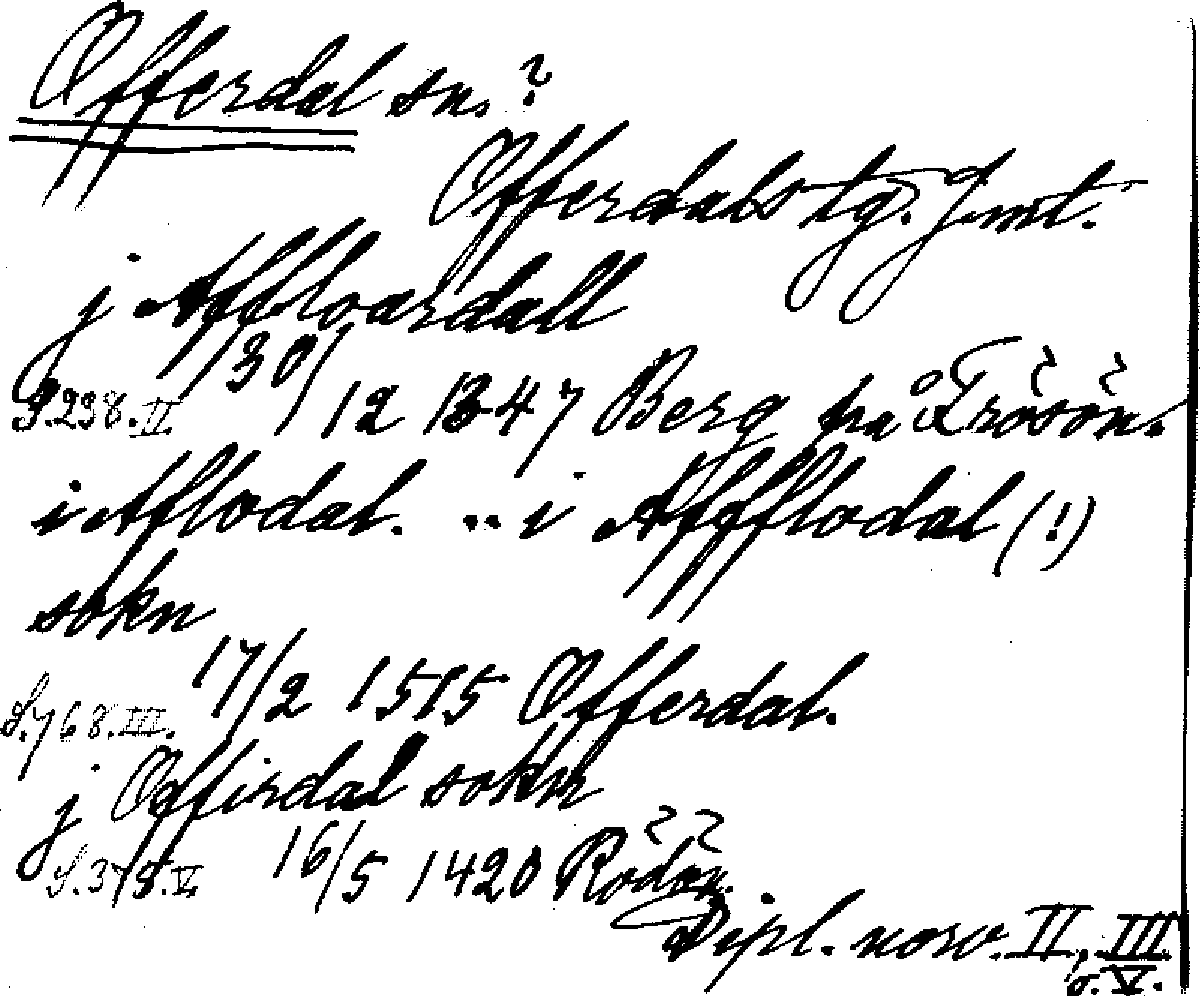 Offerdal sn. ?
Offerdals tg. Jmt.
j Affloardall
S. 238. II. 30/12 1347 Berg på Frösön.
i Aflodal. .. i Affflodal (!)
sokn
S. 768. III. 17/2 1515 Offerdal.
j Offirdal sokn
S. 378. V. 16/5 1420 Rödön.
Dipl. norv. II, III
o. V.